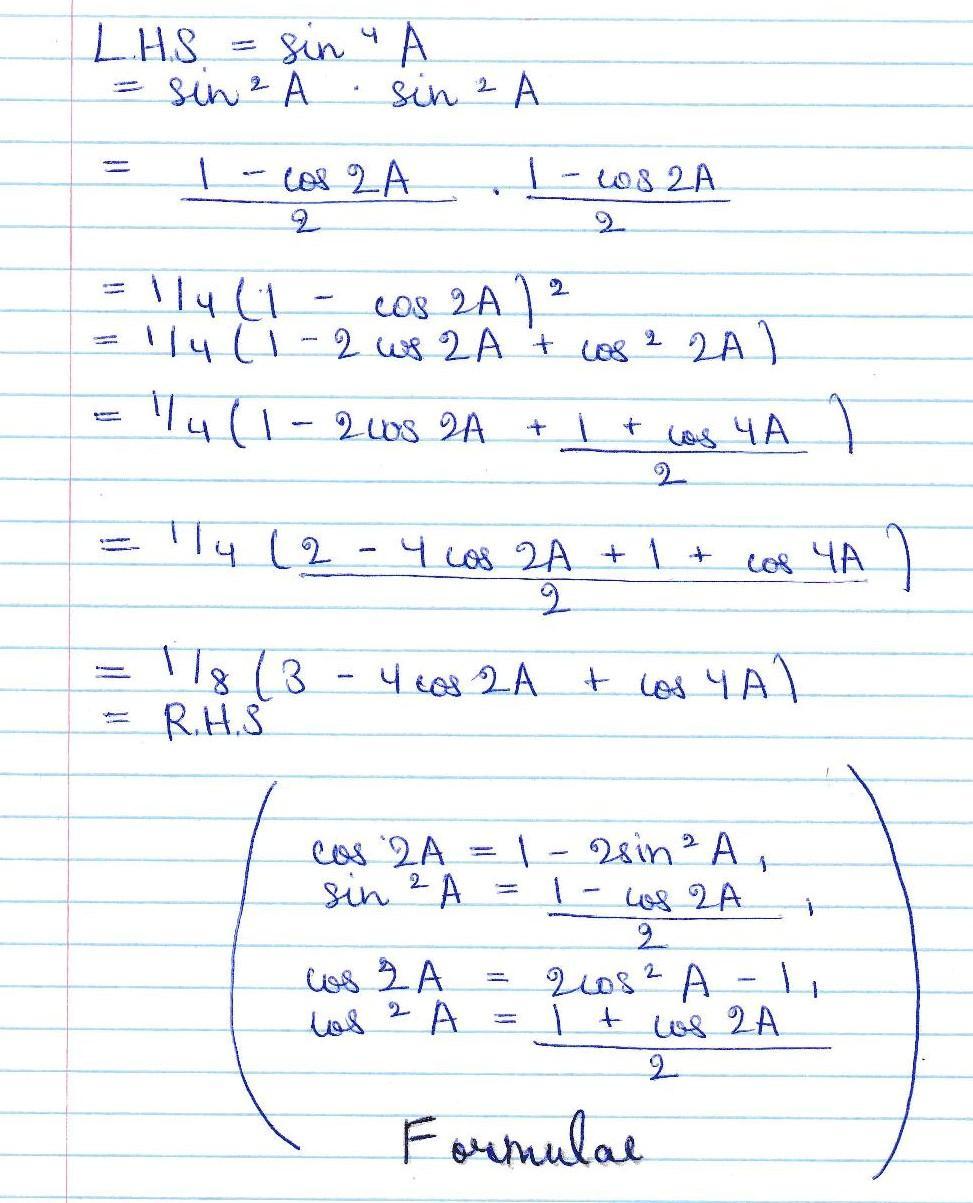 L.H.S = sin⁴ A
= sin² A · sin² A
= (1 - cos 2A)/2 · (1 - cos 2A)/2
= 1/4 (1 - cos 2A)²
= 1/4 (1 - 2 cos 2A + cos² 2A)
= 1/4 (1 - 2cos 2A + (1 + cos 4A)/2)
= 1/4 ((2 - 4 cos 2A + 1 + cos 4A)/2)
= 1/8 (3 - 4 cos 2A + cos 4A)
= R.H.S
cos 2A = 1 - 2sin² A,
sin² A = (1 - cos 2A)/2,
cos 2A = 2cos² A - 1,
cos² A = (1 + cos 2A)/2
Formulae